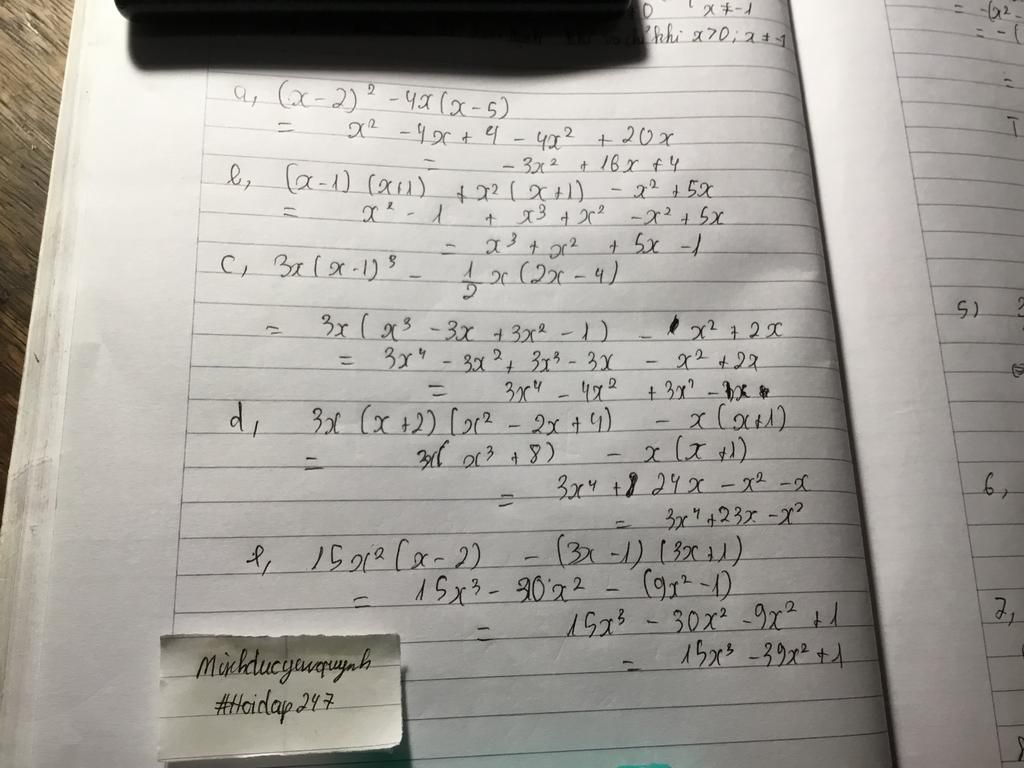 x ≠ -1
khi x>0; x ≠ -1
a, (x-2)² - 4x(x-5)
= x² - 4x + 4 - 4x² + 20x
= -3x² + 16x + 4
b, (x-1)(x+1) + x²(x+1) - x² + 5x
= x² - 1 + x³ + x² - x² + 5x
= x³ + x² + 5x - 1
c, 3x(x-1)³ - 1/2 x(2x-4)
= 3x(x³ - 3x + 3x² - 1) - x² + 2x
= 3x⁴ - 3x² + 3x³ - 3x - x² + 2x
= 3x⁴ - 4x² + 3x³ - x
d, 3x(x+2)(x² - 2x + 4) - x(x+1)
= 3x(x³ + 8) - x(x+1)
= 3x⁴ + 24x - x² - x
= 3x⁴ + 23x - x²
e, 15x²(x-2) - (3x-1)(3x+1)
= 15x³ - 30x² - (9x² - 1)
= 15x³ - 30x² - 9x² + 1
= 15x³ - 39x² + 1
#Hoidap247
5)
6,
7,